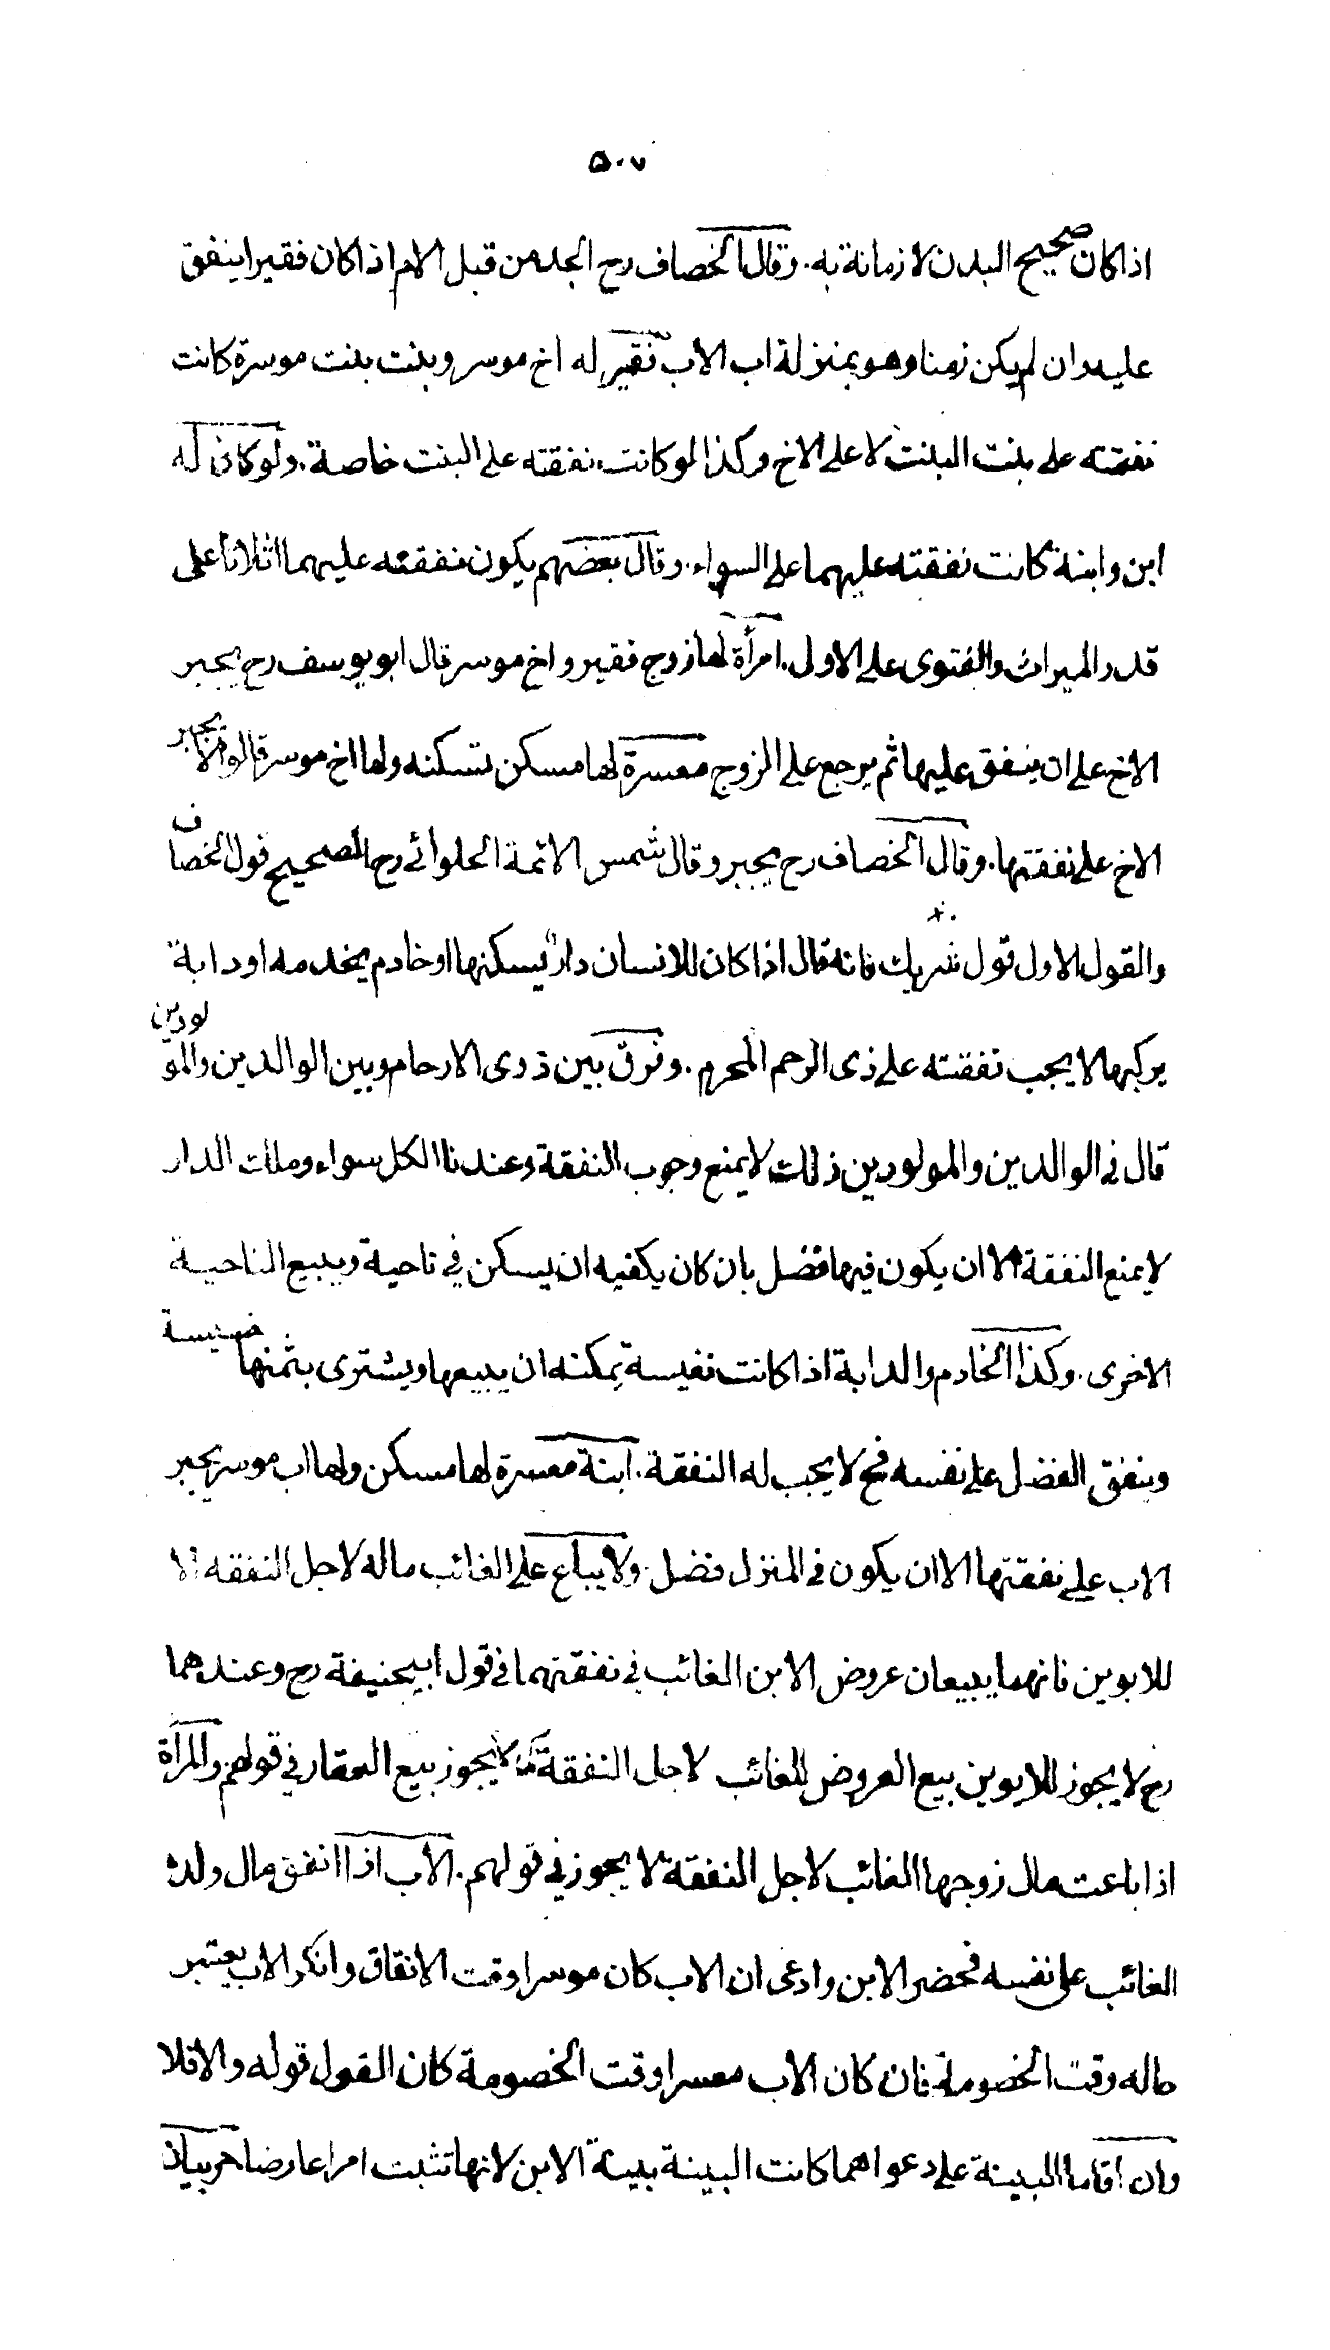 ٥٠٧
اذا كان صحيح البدن لا زمانة به. وقال الخصاف رح الجد من قبل الام اذا كان فقيرا ينفق
عليه وان لم يكن زمنا وهو بمنزلة اب الاب فقير له اخ موسر وبنت بنت موسرة كانت
نفقته على بنت البنت لا على الاخ وكذا لو كانت نفقته على البنت خاصة. ولو كان له
ابن وابنة كانت نفقته عليهما على السواء. وقال بعضهم يكون نفقته عليهما اثلاثا على
قدر الميراث والفتوى على الاول. امرأة لها زوج فقير واخ موسر قال ابو يوسف رح يجبر
الاخ على ان ينفق عليها ثم يرجع على الزوج معسرة لها مسكن تسكنه ولها اخ موسر قالوا لا يجبر
الاخ على نفقتها. وقال الخصاف رح يجبر وقال شمس الائمة الحلوائي رح الصحيح قول الخصاف
والقول الاول قول شريك فانه قال اذا كان للانسان دار يسكنها او خادم يخدمه او دابة
يركبها لا يجب نفقته على ذى الرحم المحرم. وفرق بين ذوى الارحام وبين الوالدين والمولودين
قال فى الوالدين والمولودين ذلك لا يمنع وجوب النفقة وعندنا الكل سواء وملك الدار
لا يمنع النفقة الا ان يكون فيها فضل بان كان يكفيه ان يسكن في ناحية ويبيع الناحية
الاخرى. وكذا الخادم والدابة اذا كانت نفيسة يمكنه ان يبيعها ويشترى بثمنها خسيسة
وينفق الفضل على نفسه فح لا يجب له النفقة. ابنة معسرة لها مسكن ولها اب موسر يجبر
الاب على نفقتها الا ان يكون فى المنزل فضل. ولا يباع على الغائب ماله لاجل النفقة الا
للابوين فانهما يبيعان عروض الابن الغائب في نفقتهما في قول ابيحنيفة رح وعندهما
رح لا يجوز للابوين بيع العروض للغائب لاجل النفقة كما لا يجوز بيع العقار في قولهم والمرأة
اذا باعت مال زوجها الغائب لاجل النفقة لا يجوز في قولهم. الاب اذا انفق مال ولده
الغائب على نفسه فحضر الابن وادعى ان الاب كان موسرا وقت الانفاق وانكر الاب يعتبر
حاله وقت الخصومة فان كان الاب معسرا وقت الخصومة كان القول قوله والا فلا
وان اقاما البينة على دعواهما كانت البينة بينة الابن لانها تثبت امرا عارضا